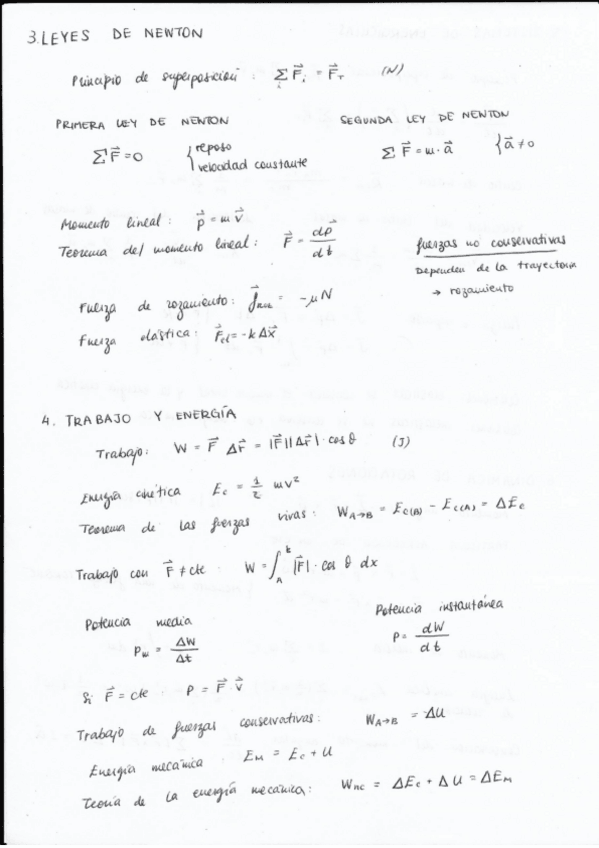 3. LEYES DE NEWTON
Principio de superposición: Σ F⃗ᵢ = F⃗ᵣ (N)
PRIMERA LEY DE NEWTON
ΣF⃗ = 0 { reposo
velocidad constante
SEGUNDA LEY DE NEWTON
Σ F⃗ = m · a⃗ { a⃗ ≠ 0
Momento lineal: p⃗ = m v⃗
Teorema del momento lineal: F⃗ = dp⃗ / dt
fuerzas no conservativas
Dependen de la trayectoria
→ rozamiento
Fuerza de rozamiento: f⃗roz = -μN
Fuerza elástica: F⃗el = -k Δx⃗
4. TRABAJO Y ENERGÍA
Trabajo: W = F⃗ Δr⃗ = |F⃗||Δr⃗| · cos θ (J)
Energía cinética Ec = 1/2 mv²
Teorema de las fuerzas vivas: W A→B = Ec(B) - Ec(A) = ΔEc
Trabajo con F⃗ ≠ cte: W = ∫ |F⃗| · cos θ dx
A
Potencia media
Pm = ΔW / Δt
Potencia instantánea
P = dW / dt
Si F⃗ = cte, P = F⃗ v⃗
Trabajo de fuerzas conservativas: W A→B = ΔU
Energía mecánica: EM = Ec + U
Teoría de la energía mecánica: Wnc = ΔEc + ΔU = ΔEM